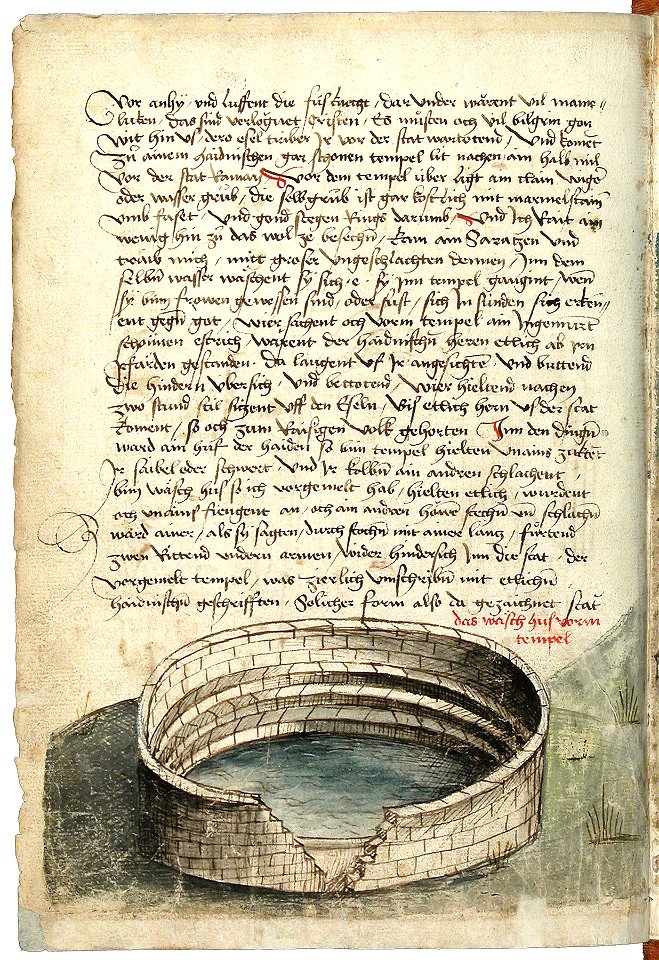 Vor anhy / und luffent die füs knecht / dar under wärent vil mame-
lucken / das sind verlögnet Cristen / Es müsten och vil bilgern gon
wit hin us / dero esel triber Ir vor der stat wartotend / Und koment
zů ainem haidnischen gar schonen tempel lit nachen am halb mil
vor der stat Raman / Vor dem tempel über ligt am clain
oder wasser grüb / die selb grüb ist gar kostlich mit marmelstain
umb faset / Und gond stegen Rings darumb / Und Ich Rait ain
wenig hin zů das wol ze besechen / kam ain Saratzen und
traib mich / mitt groser ungeschlachten dennen / Inn dem
selbn wasser wäschent sÿ sich / e / sÿ Inn tempel gangint / wen
sÿ bÿ frowen gewessen sind / oder sust / sich In sünden sich erken-
ent gegen got / wier sachent och vorm tempel am Ingemurt
schoinen estrich / warent der haidnischn heren etlich ab Irn
pfärden gestanden / da laugent uf Ir angesichte / und buttend
die hindern übersich / und bettotend / wier hieltend nachen
zwo stund stil sizent uff den Eseln / bis etlich hern us der stat
koment / so och zum Räisigen volk gehorten Inn den dingen
ward ain huf der haiden so bim tempel hielten unains zuckten
Ir säibel oder schwert und Ir kolbn ain andren schlachent /
bim wäsch hus so ich vorgemelt hab / hielten etlich / wurdent
och unains fiengent an / och ain andren stechn un schlachn
ward ainer / als sÿ sagten / durch stochn mit ainer lantz / fürtend
zwen Rittend undern armen / wider hindersich Inn die stat / der
vorgemelt tempel / was zierlich umschribn mit etlichn
haidnischn geschrifften / Solicher form also da gezaichnet stat
das wäsch hus vorm
tempel